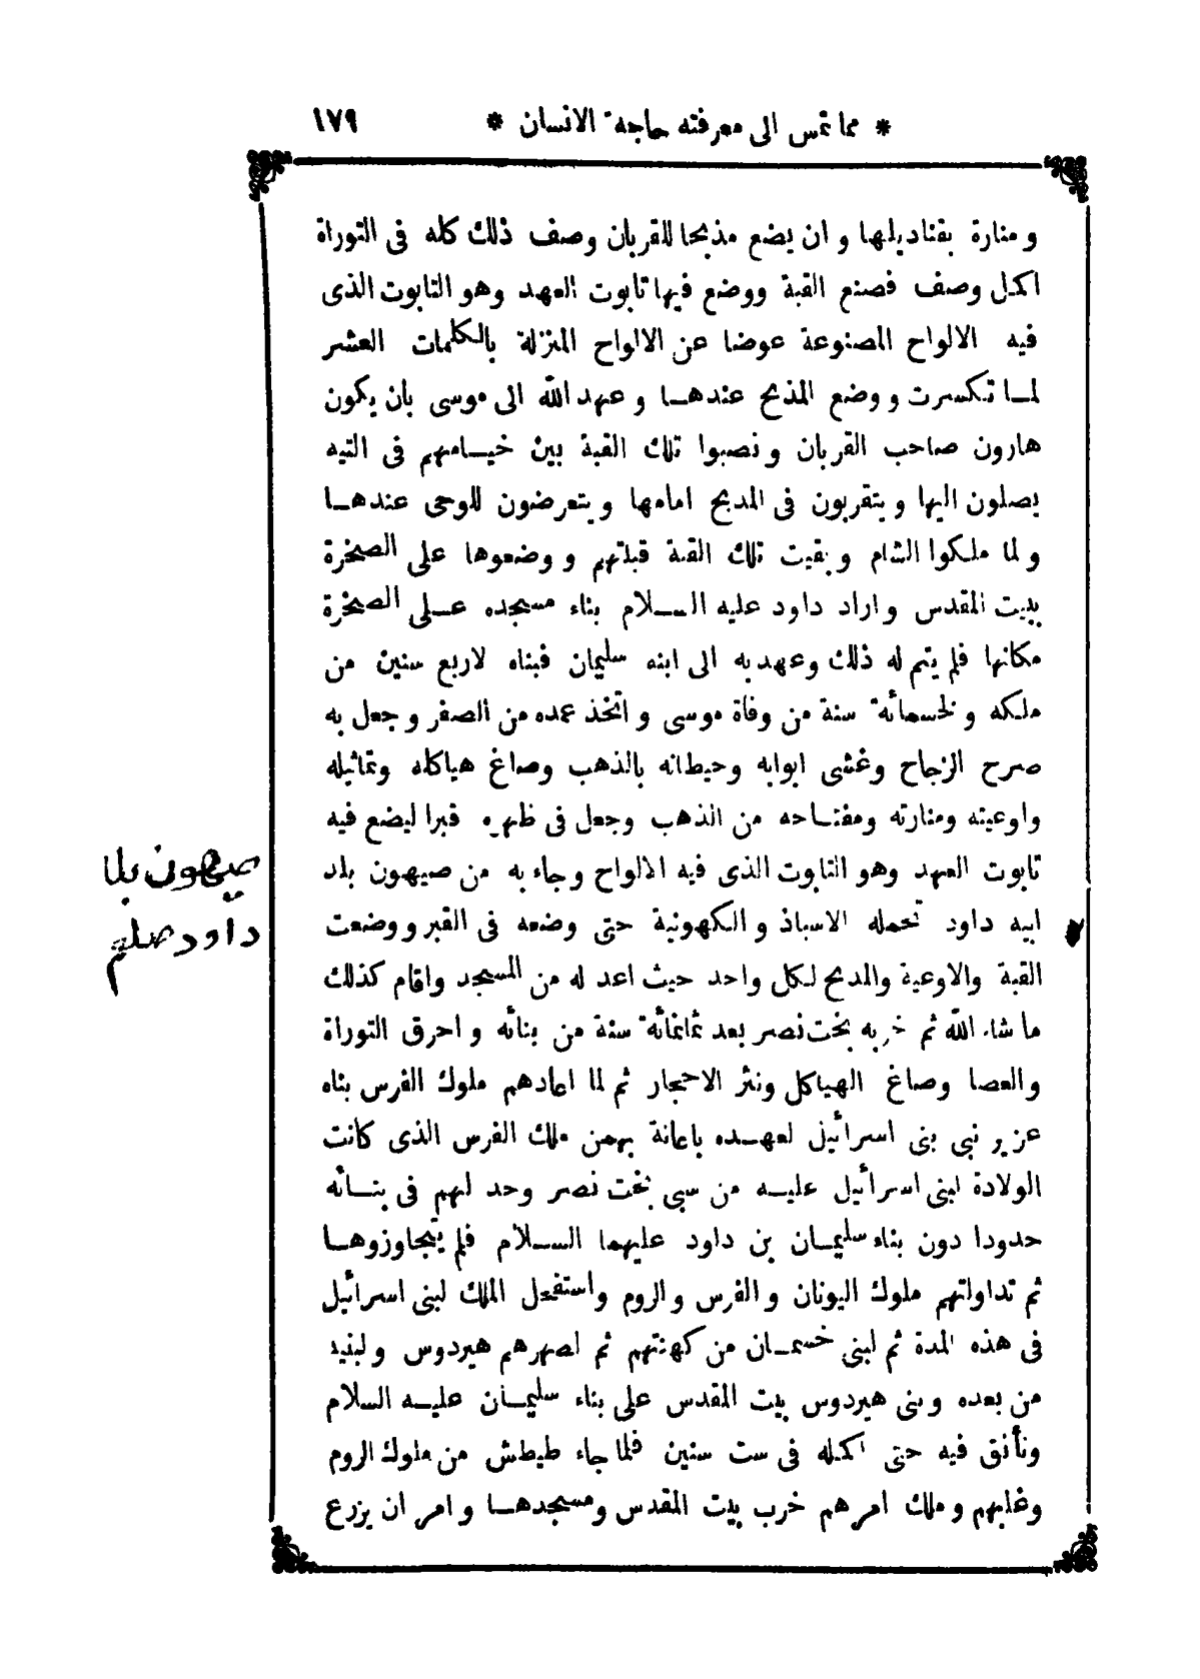 * مما تمس الى معرفته حاجة الانسان * ١٧٩
ومنارة بقناديلها وان يضع مذبحا للقربان وصف ذلك كله فى التوراة
اكمل وصف فصنع القبة ووضع فيها تابوت العهد وهو التابوت الذى
فيه الالواح المصنوعة عوضا عن الالواح المنزلة بالكلمات العشر
لما تكسرت ووضع المذبح عندها وعهد الله الى موسى بان يكون
هارون صاحب القربان ونصبوا تلك القبة بين خيامهم فى التيه
يصلون اليها ويتقربون فى المدبح امامها ويتعرضون للوحى عندها
ولما ملكوا الشام وبقيت تلك القبة قبلتهم ووضعوها على الصخرة
ببيت المقدس واراد داود عليه السلام بناء مسجده على الصخرة
مكانها فلم يتم له ذلك وعهد به الى ابنه سليمان فبناه لاربع سنين من
ملكه ولخسمائة سنة من وفاة موسى واتخذ عمده من الصفر وجعل به
صرح الزجاج وغشى ابوابه وحيطانه بالذهب وصاغ هياكله وتماثيله
واوعيته ومنارته ومفتاحه من الذهب وجعل فى ظهره قبرا ليضع فيه
تابوت العهد وهو التابوت الذى فيه الالواح وجاء به من صيهون بلد
ابيه داود تحمله الاسباذ والكهونية حتى وضعه فى القبر ووضعت
القبة والاوعية والمدبح لكل واحد حيث اعد له من المسجد واقام كذلك
ما شاء الله ثم خربه بخت نصر بعد ثمانمائة سنة من بنائه واحرق التوراة
والعصا وصاغ الهياكل ونثر الاحجار ثم لما اعادهم ملوك الفرس بناه
عزير نبى بنى اسرائيل لعهده باعانة بهمن ملك الفرس الذى كانت
الولادة لبنى اسرائيل عليه من سبى بخت نصر وحد لهم فى بنائه
حدودا دون بناء سليمان بن داود عليهما السلام فلم يتجاوزوها
ثم تداولتهم ملوك اليونان والفرس والروم واستفحل الملك لبنى اسرائيل
فى هذه المدة ثم لبنى خسمان من كهنتهم ثم لصهرهم هيردوس ولبنيه
من بعده وبنى هيردوس بيت المقدس على بناء سليمان عليه السلام
وتأنق فيه حتى اكمله فى ست سنين فلما جاء طيطش من ملوك الروم
وغلبهم وملك امرهم خرب بيت المقدس ومسجدها وامر ان يزرع
صيهون بلد
داود صلعم